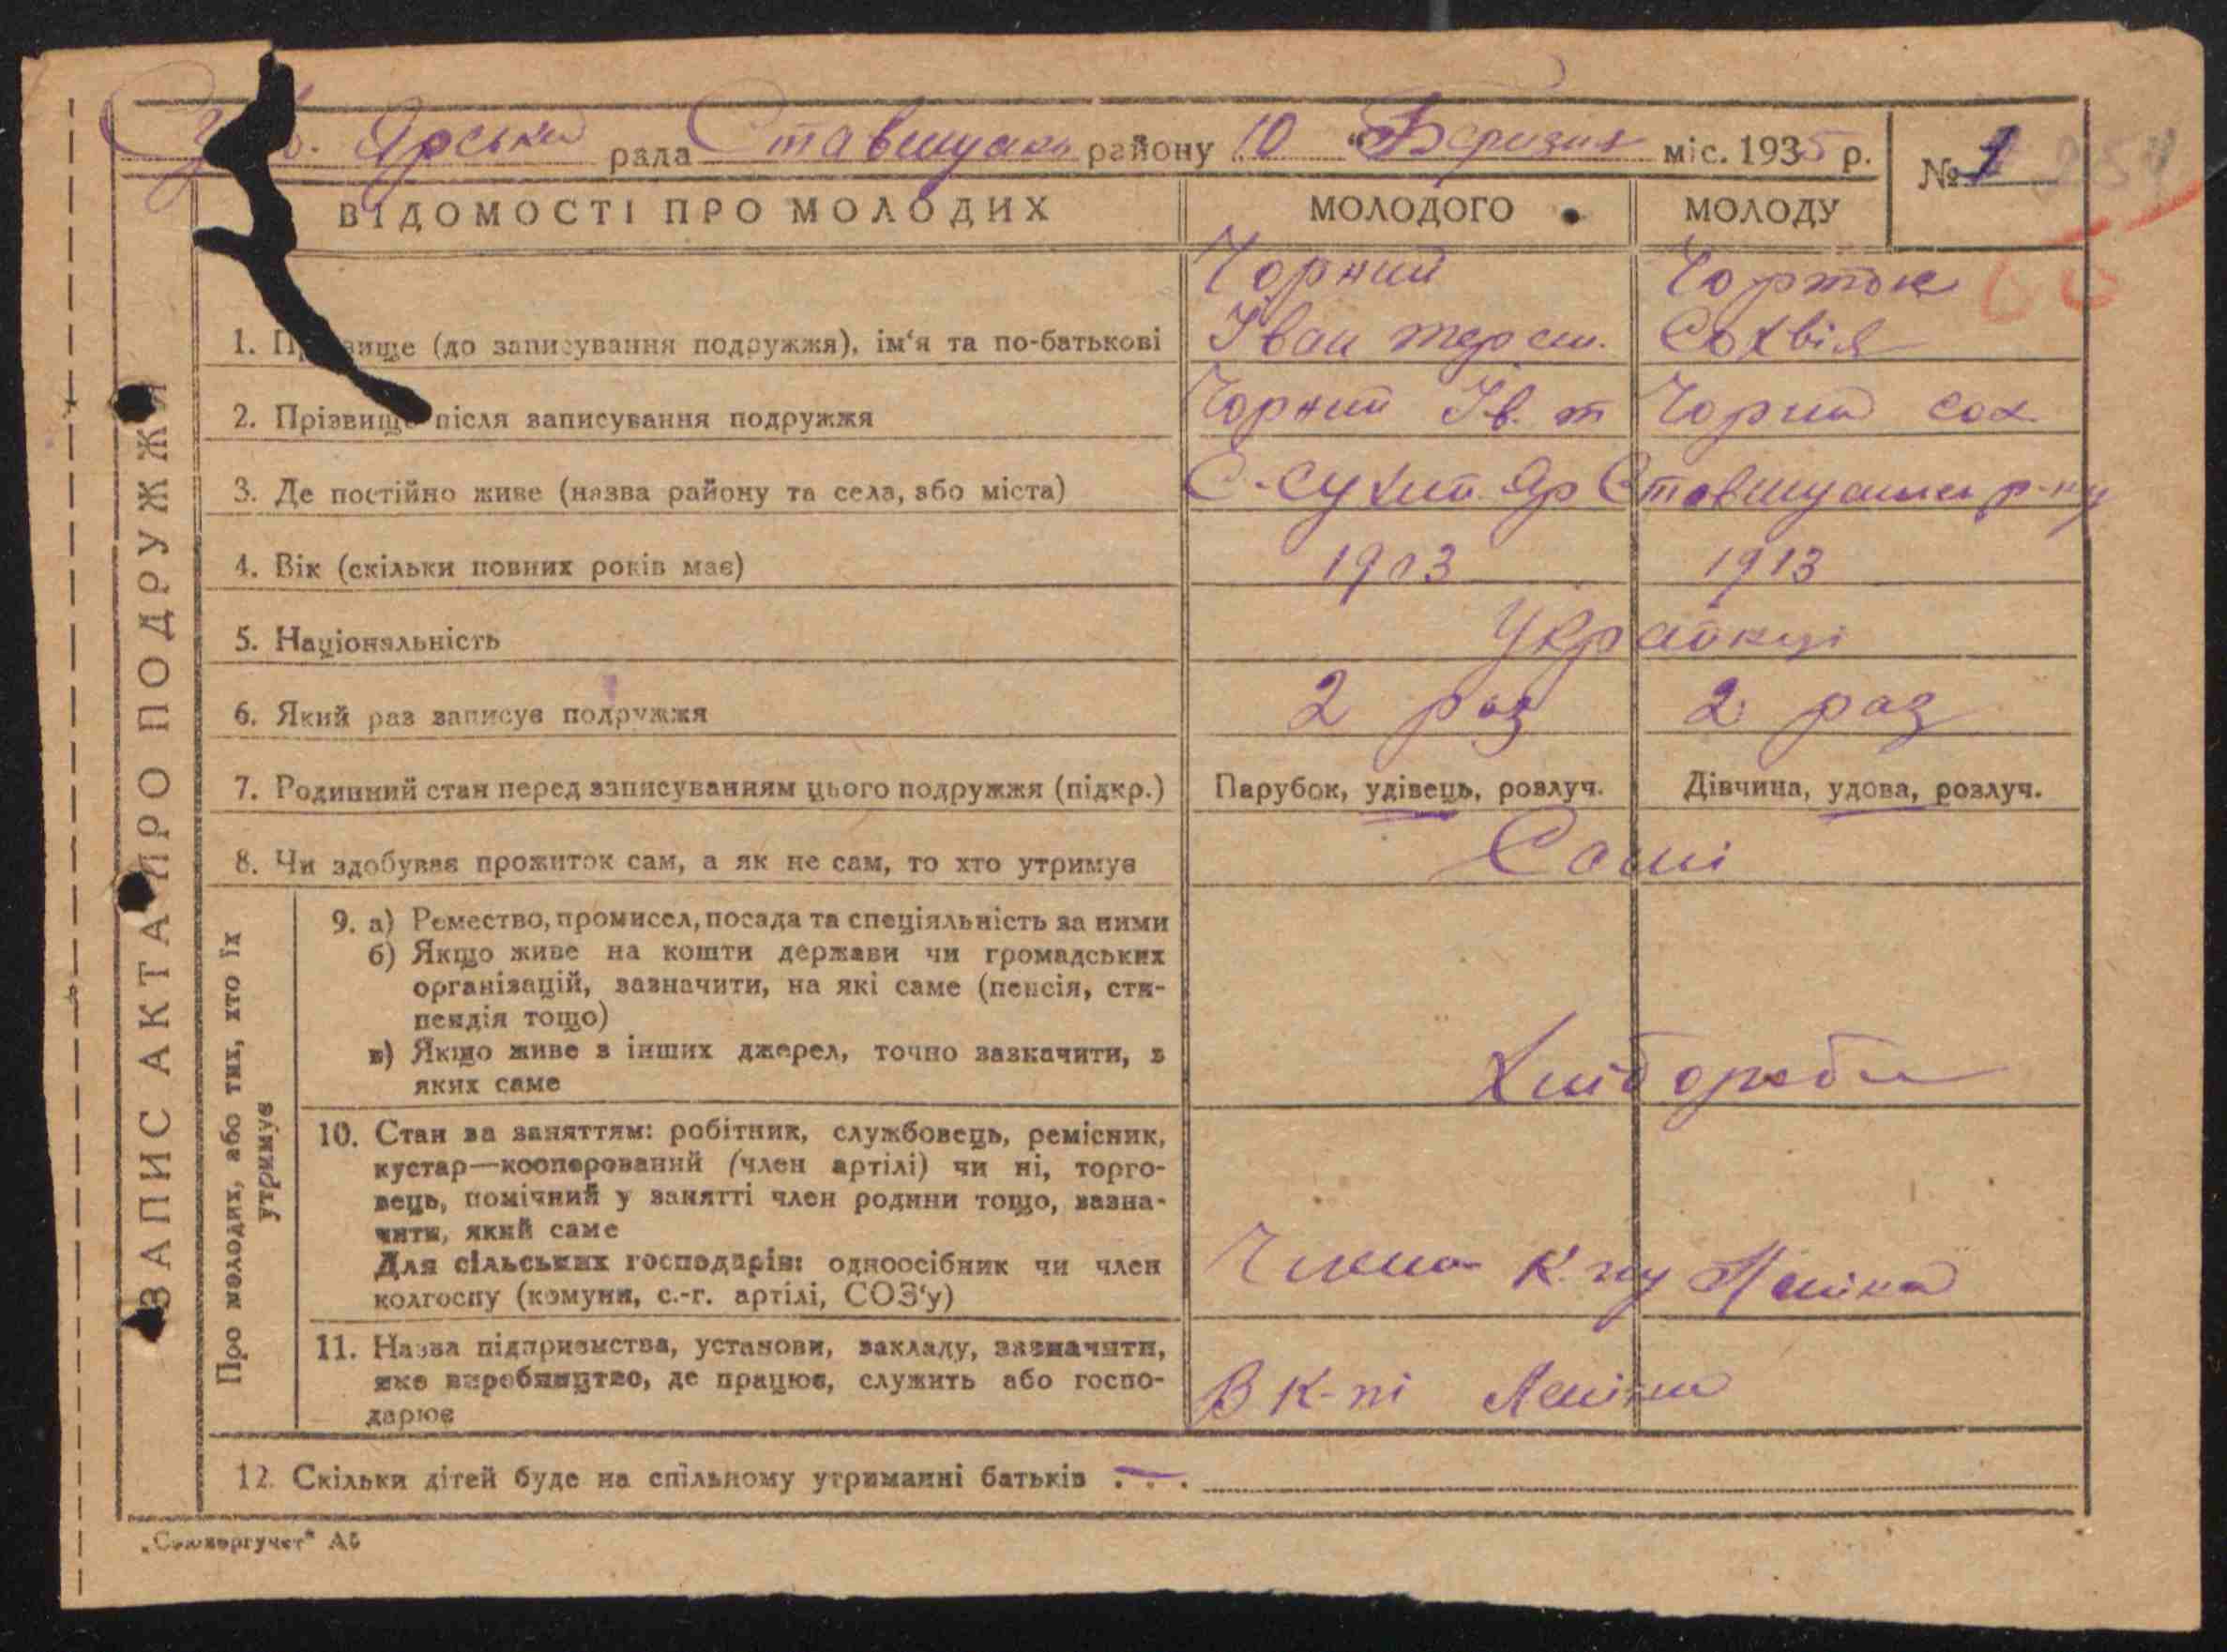 Ярська рада района 10 "Березня міс. 1935 р.
№ 1
ВІДОМОСТІ ПРО МОЛОДИХ МОЛОДОГО МОЛОДУ
Чорний Чорток
1. Прізвище (до записування подружжя), ім'я та по-батькові Іван Сохвія
2. Прізвище після записування подружжя Чорний Ів. т Чорна сох
3. Де постійно живе (назва району та села, або міста) С-Сухий Яр р-ну
4. Вік (скільки повних років має) 1903 1913
5. Національність Українці
6. Який раз записує подружжя 2 раз 2 раз
7. Родинний стан перед записуванням цього подружжя (підкр.) Парубок, удівець, розлуч. Дівчина, удова, розлуч.
8. Чи здобуває прожиток сам, а як не сам, то хто утримує Самі
9. а) Ремество, промисел, посада та спеціяльність за ними
б) Якщо живе на кошти держави чи громадських
організацій, зазначити, на які саме (пенсія, сти-
пендія тощо)
в) Якщо живе з інших джерел, точно зазначити, з
яких саме
Хлібороби
10. Стан за заняттям: робітник, службовець, ремісник,
кустар—кооперований (член артілі) чи ні, торго-
вець, помічний у занятті член родини тощо, зазна-
чити, який саме
Для сільських господарів: одноосібник чи член
колгоспу (комуни, с.-г. артілі, СОЗ'у)
Члени к-пу Леніна
11. Назва підприємства, установи, закладу, зазначити,
яке виробництво, де працює, служить або госпо-
дарює
В к-пі Леніна
12. Скільки дітей буде на спільному утриманні батьків . . .
ЗАПИС АКТА ПРО ПОДРУЖЖЯ
Про молодих, або тих, хто їх
утримує
„Союзоргучет"